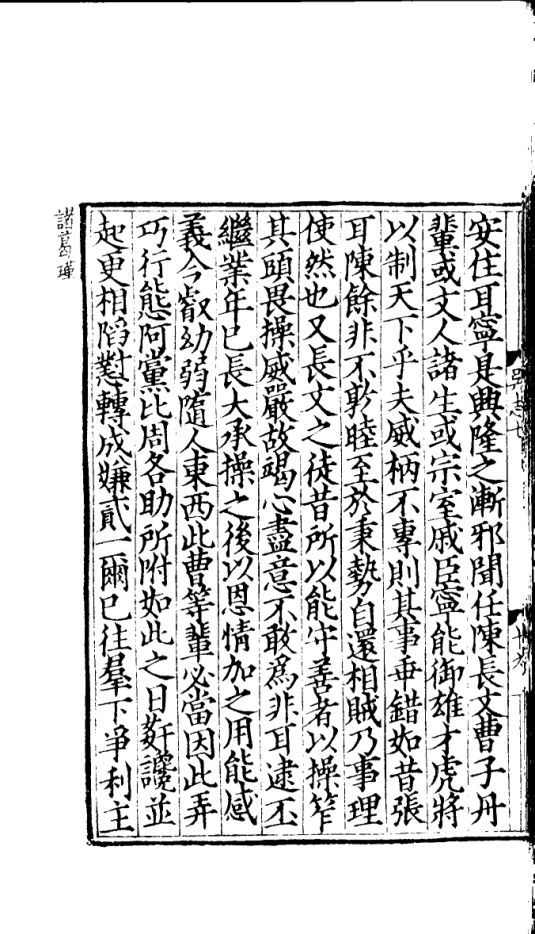 安住耳寧是興隆之漸邪聞任陳長文曹子丹
輩或文人諸生或宗室戚臣寧能御雄才虎將
以制天下乎夫威柄不專則其事乖錯如昔張
耳陳餘非不敦睦至於秉勢自還相賊乃事理
使然也又長文之徒昔所以能守善者以操笮
其頭畏操威嚴故竭心盡意不敢爲非耳逮丕
繼業年已長大承操之後以恩情加之用能感
義今叡幼弱隨人東西此曹等輩必當因此弄
巧行態阿黨比周各助所附如此之日姦讒並
起更相陷懟轉成嫌貳一爾已往羣下爭利主
諸葛瑾
吳志七